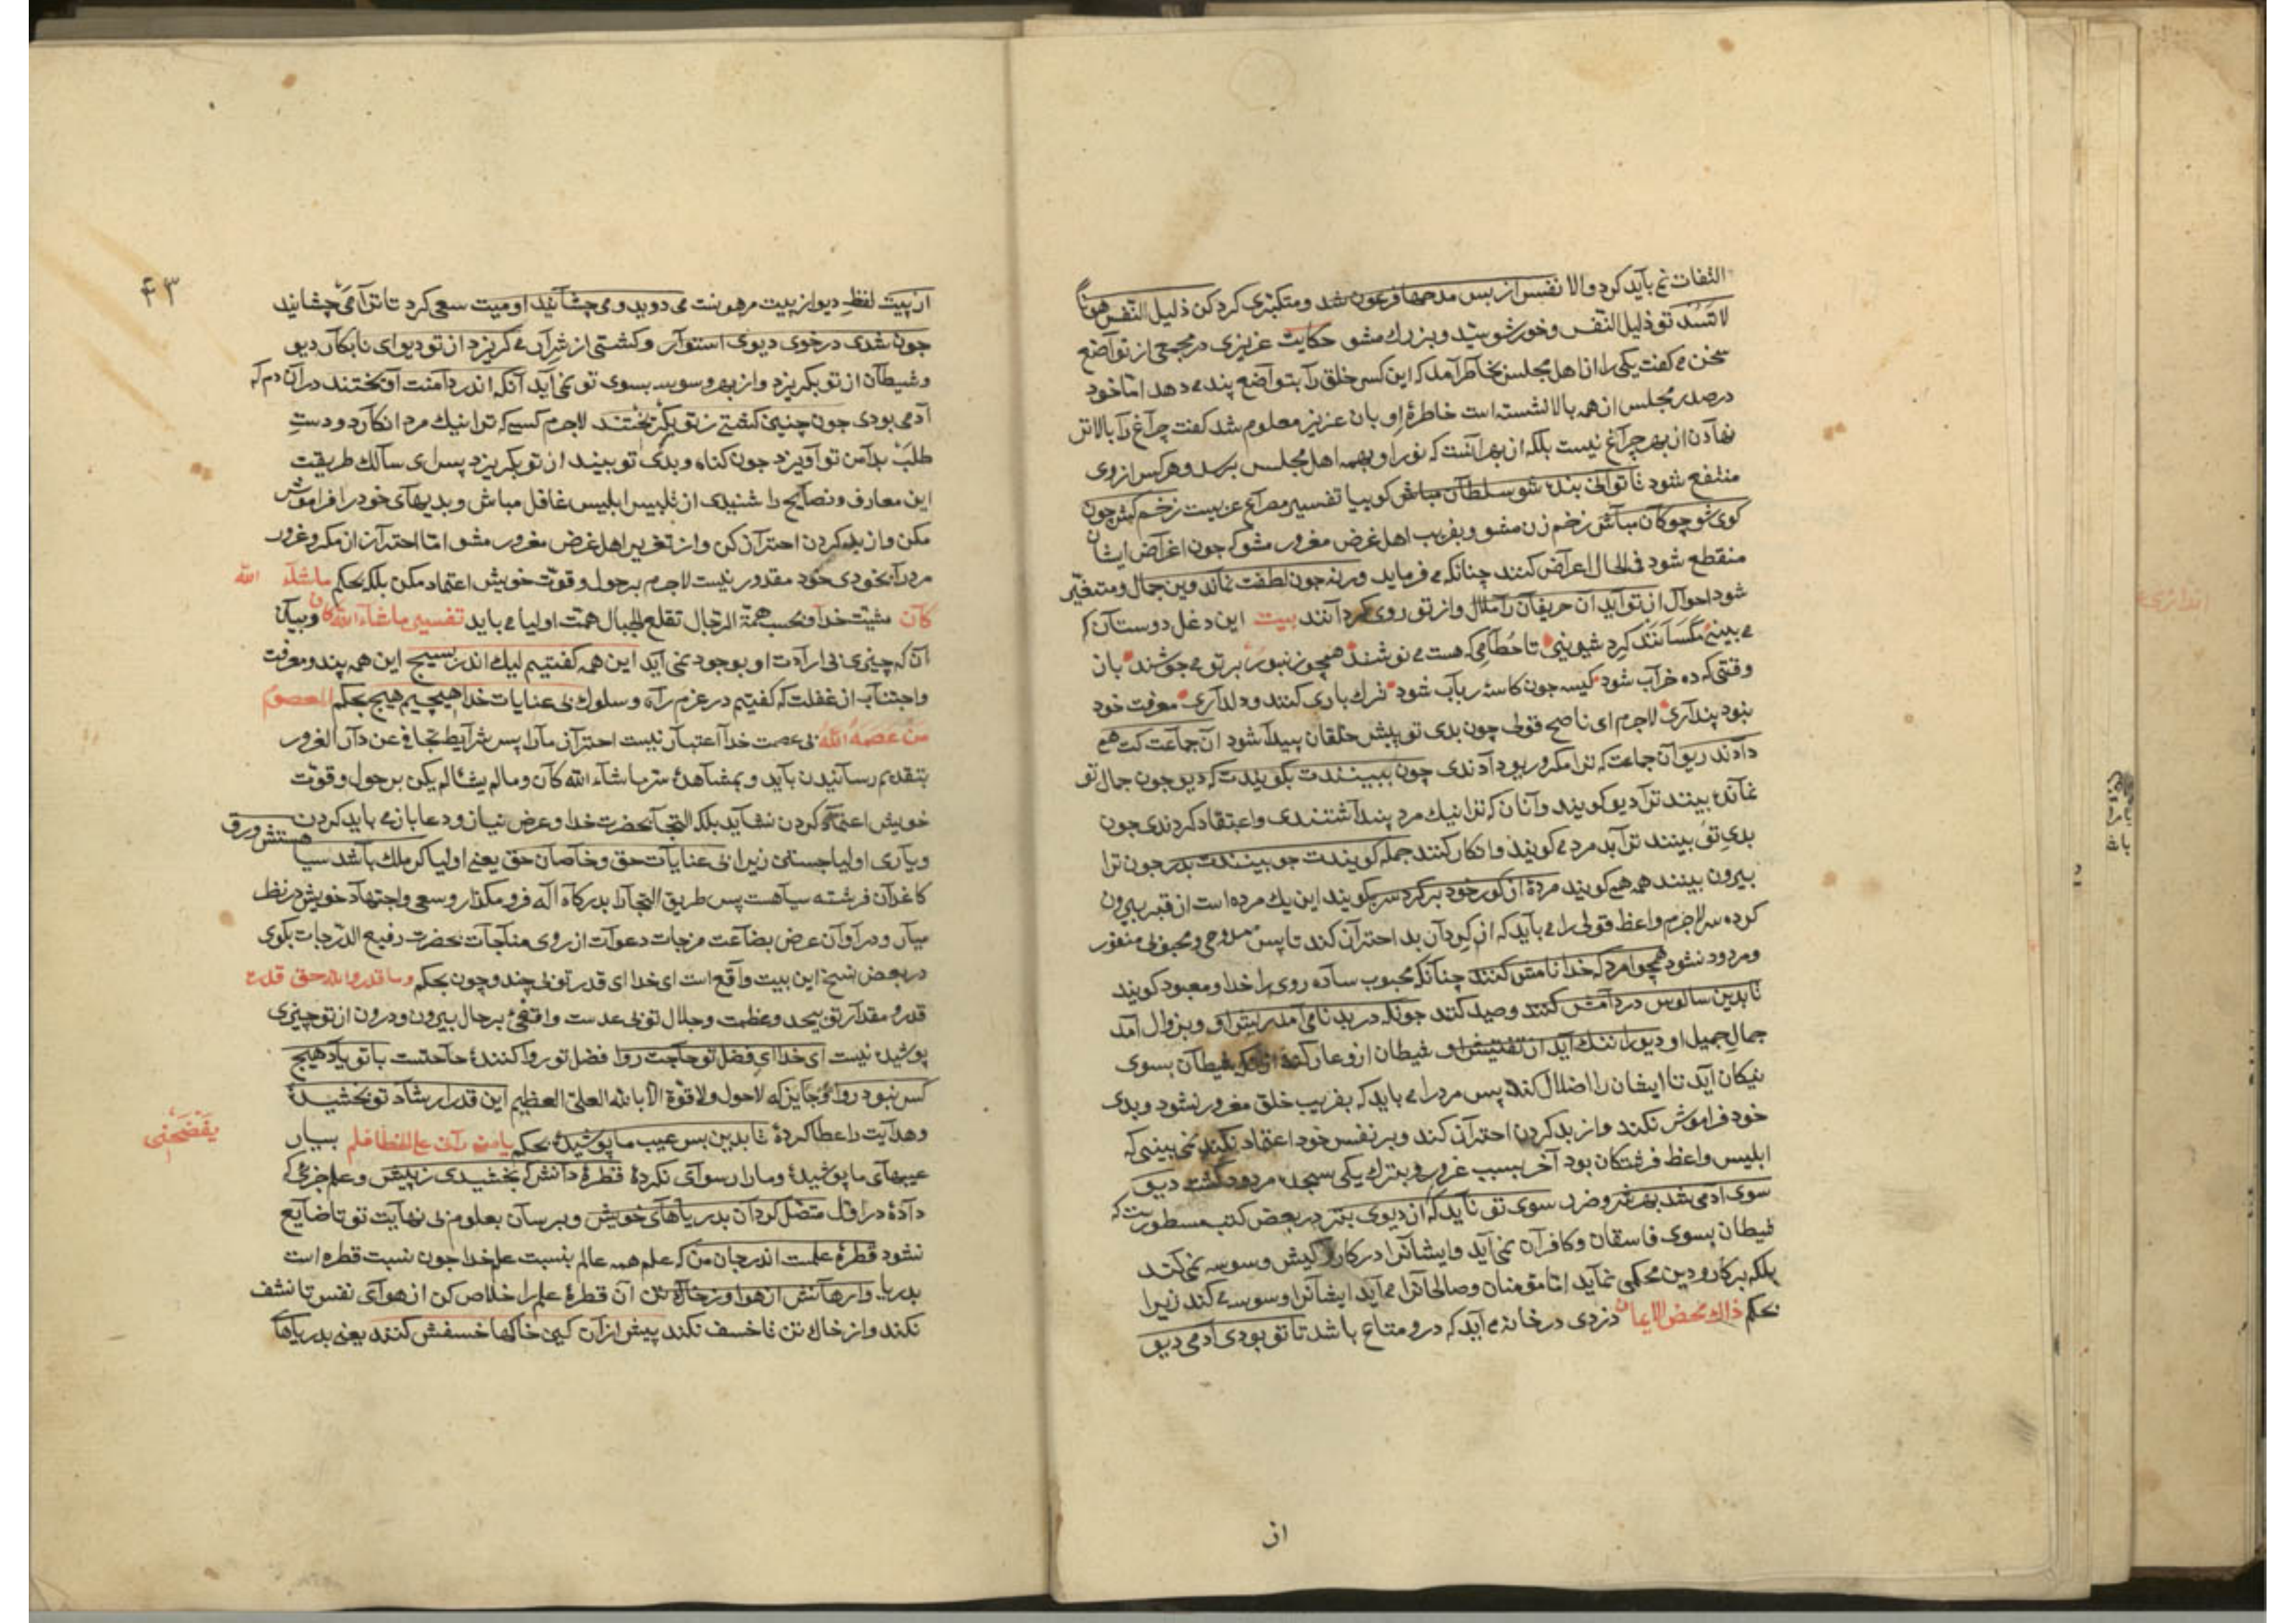 التفات نمی باید کرد والا نفس از بس مدحها فرعون شد و متکبری کرد کن ذلیل النفس هونا
لا تسد تو ذلیل النفس و خورشو سید و بزرك مشو حکایت عزیزی در مجمعی از تواضع
سخن می کفت یکی را از اهل مجلس بخاطر آمد که این کس خلق را بتواضع پند می دهد امّا خود
در صدر مجلس از همه بالا نشسته است خاطرۀ او بان عزیز معلوم شد کفت چراغ را بالاتر
نهادن از بهر چراغ نیست بلکه از بهر آنست که نور او بهمه اهل مجلس برسد و هرکس از وی
منتفع شود تا توانی بنده شو سلطان مباش کوییا تفسیر مصراع عربیست زخم کش چون
کوی شو چوکان مباش زخم زن مشو و بفریب اهل غرض مغرور مشو که چون اغراض ایشان
منقطع شود فی الحال اعراض کنند چنانکه می فرماید ورنه چون لطفت نماند وین جمال و متغیّر
شود احوال از تو آید آن حریفان را ملال و از تو روی کردانند بیت این دغل دوستان که
می بینی مکسانند کرد شیرینی تا حطامی که هست می نوشند همچو زنبور بر تو می جوشند بان
وقتی که ده خراب شود کیسه چون کاسۀ رباب شود ترك یاری کنند و دلداری معرفت خود
نبود پنداری لاجرم ای ناصح قولی چون بدی تو پیش خلقان پیدا شود آن جماعت کت همی
دادند ریو آن جماعت که ترا مکر و ریو دادندی چون ببینندت بکویندت که دیو چون جمال تو
نمانده بینند ترا دیو کویند و آنان که ترا نیك مرد پنداشتندی و اعتقاد کردندی چون
بدی تو بینند ترا بد مرد می کویند و انکار کنند جمله کویندت چو بینندت بدر چون ترا
بیرون بینند همه هی کویند مردۀ از کور خود بر کرد سر بکویند این یك مرده است از قبر بیرون
کرده سر لاجرم واعظ قولی را می باید که از کردآن بد احتراز کند تا پس ممدوحی و محبوبی منفور
و مردود نشود همچو امرد که خدا نامش کنند چنانکه محبوب ساده روی را خدا و معبود کویند
تا بدین سالوس در دامش کنند و صید کنند چونکه در بدنامی آمد ریش او و بزوال آمد
جمال جمیل او دیو را ننك آید از تفتیش او شیطان از و عار کند شیطان بسوی
نیکان آید تا ایشان را اضلال کند پس مرد را می باید که بفریب خلق مغرور نشود و بدی
خود فراموش نکند و از بد کردن احتراز کند و بر نفس خود اعتماد نکند نمی بینی که
ابلیس واعظ فرشتکان بود آخر بسبب غرور و بترك یکی سجده مردود کشت دیو
سوی آدمی شد بهر شر و ضرر سوی تو ناید که از دیوی بتر در بعض کتب مسطورست که
شیطان بسوی فاسقان و کافران نمی آید و ایشانرا در کار کیش وسوسه نمی کند
بلکه بر کار و دین محکمی نماید امّا مؤمنان و صالحانرا می آید ایشانرا وسوسه می کند زیرا
بحکم ذاك محض الایمان دزدی در خانه می آید که درو متاع باشد تا تو بودی آدمی دیو
از
۴۳
از پیت لفظ دیو از پیت مرهونست می دوید و می چشانید او میت سعی کرد تا ترا می چشانید
چون شدی در خوی دیوی استوار و کشتی از شرار می کریزد از تو دیو ای نابکار دیو
و شیطان از تو بکریزد و از بهر وسوسه بسوی تو نمی آید آنکه اندر دامنت آویختند در آن دم که
آدمی بودی چون چنین کشتی ز تو بکریختند لاجرم کسی که ترا نیك مرد انکارد و دست
طلب بدامن تو آویزد چون کناه و بدی تو بیند از تو بکریزد پس ای سالك طریقت
این معارف و نصایح را شنیدی از تلبیس ابلیس غافل مباش و بدیهای خود را فراموش
مکن و از بد کردن احتراز کن و از تغریر اهل غرض مغرور مشو امّا احتراز از مکر و غرور
مرد را بخودی خود مقدور نیست لاجرم بر حول و قوّت خویش اعتماد مکن بلکه بحکم ماشاء الله
کان مشیّت خدا و بحسب همّة الرّجال تقلع الجبال همّت اولیا می باید تفسیر ما شاء الله کان و بیان
آن که چیزی بی ارادت او بوجود نمی آید این همه کفتیم لیك اندر بسیج این همه پند و معرفت
و اجتناب از غفلت که کفتیم در عزم راه و سلوك بی عنایات خدا هیچیم هیچ بحکم المعصوم
من عصمه الله بی عصمت خدا اعتبار نیست احتراز ما را پس شرایط تجافی عن دار الغرور
بتقدیم رسانیدن باید و بمشاهدۀ سرّ ما شاء الله کان و مالم یشأ لم یکن بر حول و قوّت
خویش اعتماد کردن نشاید بلکه التجا بحضرت خدا و عرض نیاز و دعا بازمی باید کردن
و یاری اولیا جستن زیرا بی عنایات حق و خاصان حق یعنی اولیا کر ملك باشد سیا هستش ورق
کاغذ آن فرشته سیاهست پس طریق التجا را بدرکاه اله فرو مکذار و سعی و اجتهاد خویش در نظر
میار و در آوان عرض بضاعت مزجات دعوات از روی مناجات بحضرت رفیع الدّرجات بکوی
در بعض نسخ این بیت واقع است ای خدا ای قدر تو بی چند و چون بحکم وما قدروا الله حق قدره
قدر و مقدار تو بیحد و عظمت و جلال تو بی عدست واقفی بر حال بیرون و درون از تو چیزی
پوشیده نیست ای خدا ای فضل تو حاجت روا فضل تو روا کنندۀ حاجتست با تو یاد هیچ
کس نبود روا و جایز که لاحول ولا قوّة الا بالله العلیّ العظیم این قدر ارشاد تو بخشیدۀ
و هدایت را عطا کردۀ تا بدین بس عیب ما پوشیدۀ بحکم یا من رآنی علی الخطا فلم یفضحنی بسیار
عیبهای ما پوشیدۀ و ما را رسوای نکردۀ قطرۀ دانش که بخشیدی ز پیش و علم جزئی که
دادۀ در اوّل متصل کردان بدریاهای خویش و برسان بعلوم بی نهایت تو تا ضایع
نشود قطرۀ علمست اندر جان من که علم همه عالم بنسبت علم خدا چون نسبت قطره است
بدریا وارهانش از هوا وز خاك تن آن قطرۀ علم را خلاص کن از هوای نفس تا نشف
نکند و از خاك تن تا خسف نکند پیش از آن کین خاکها خسفش کنند یعنی بدریاها